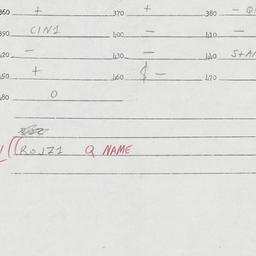 360 + 370 + 380 -
390 CIN1 400 - 410 -
420 - 430 - 440
450 + 460 $ - 470
480 0
Q NAME